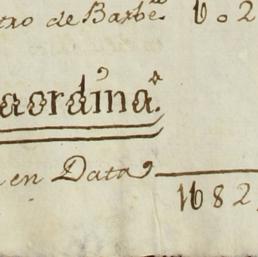 tro de Barbe.ª 16.02
aordina.ª
en Data
1682